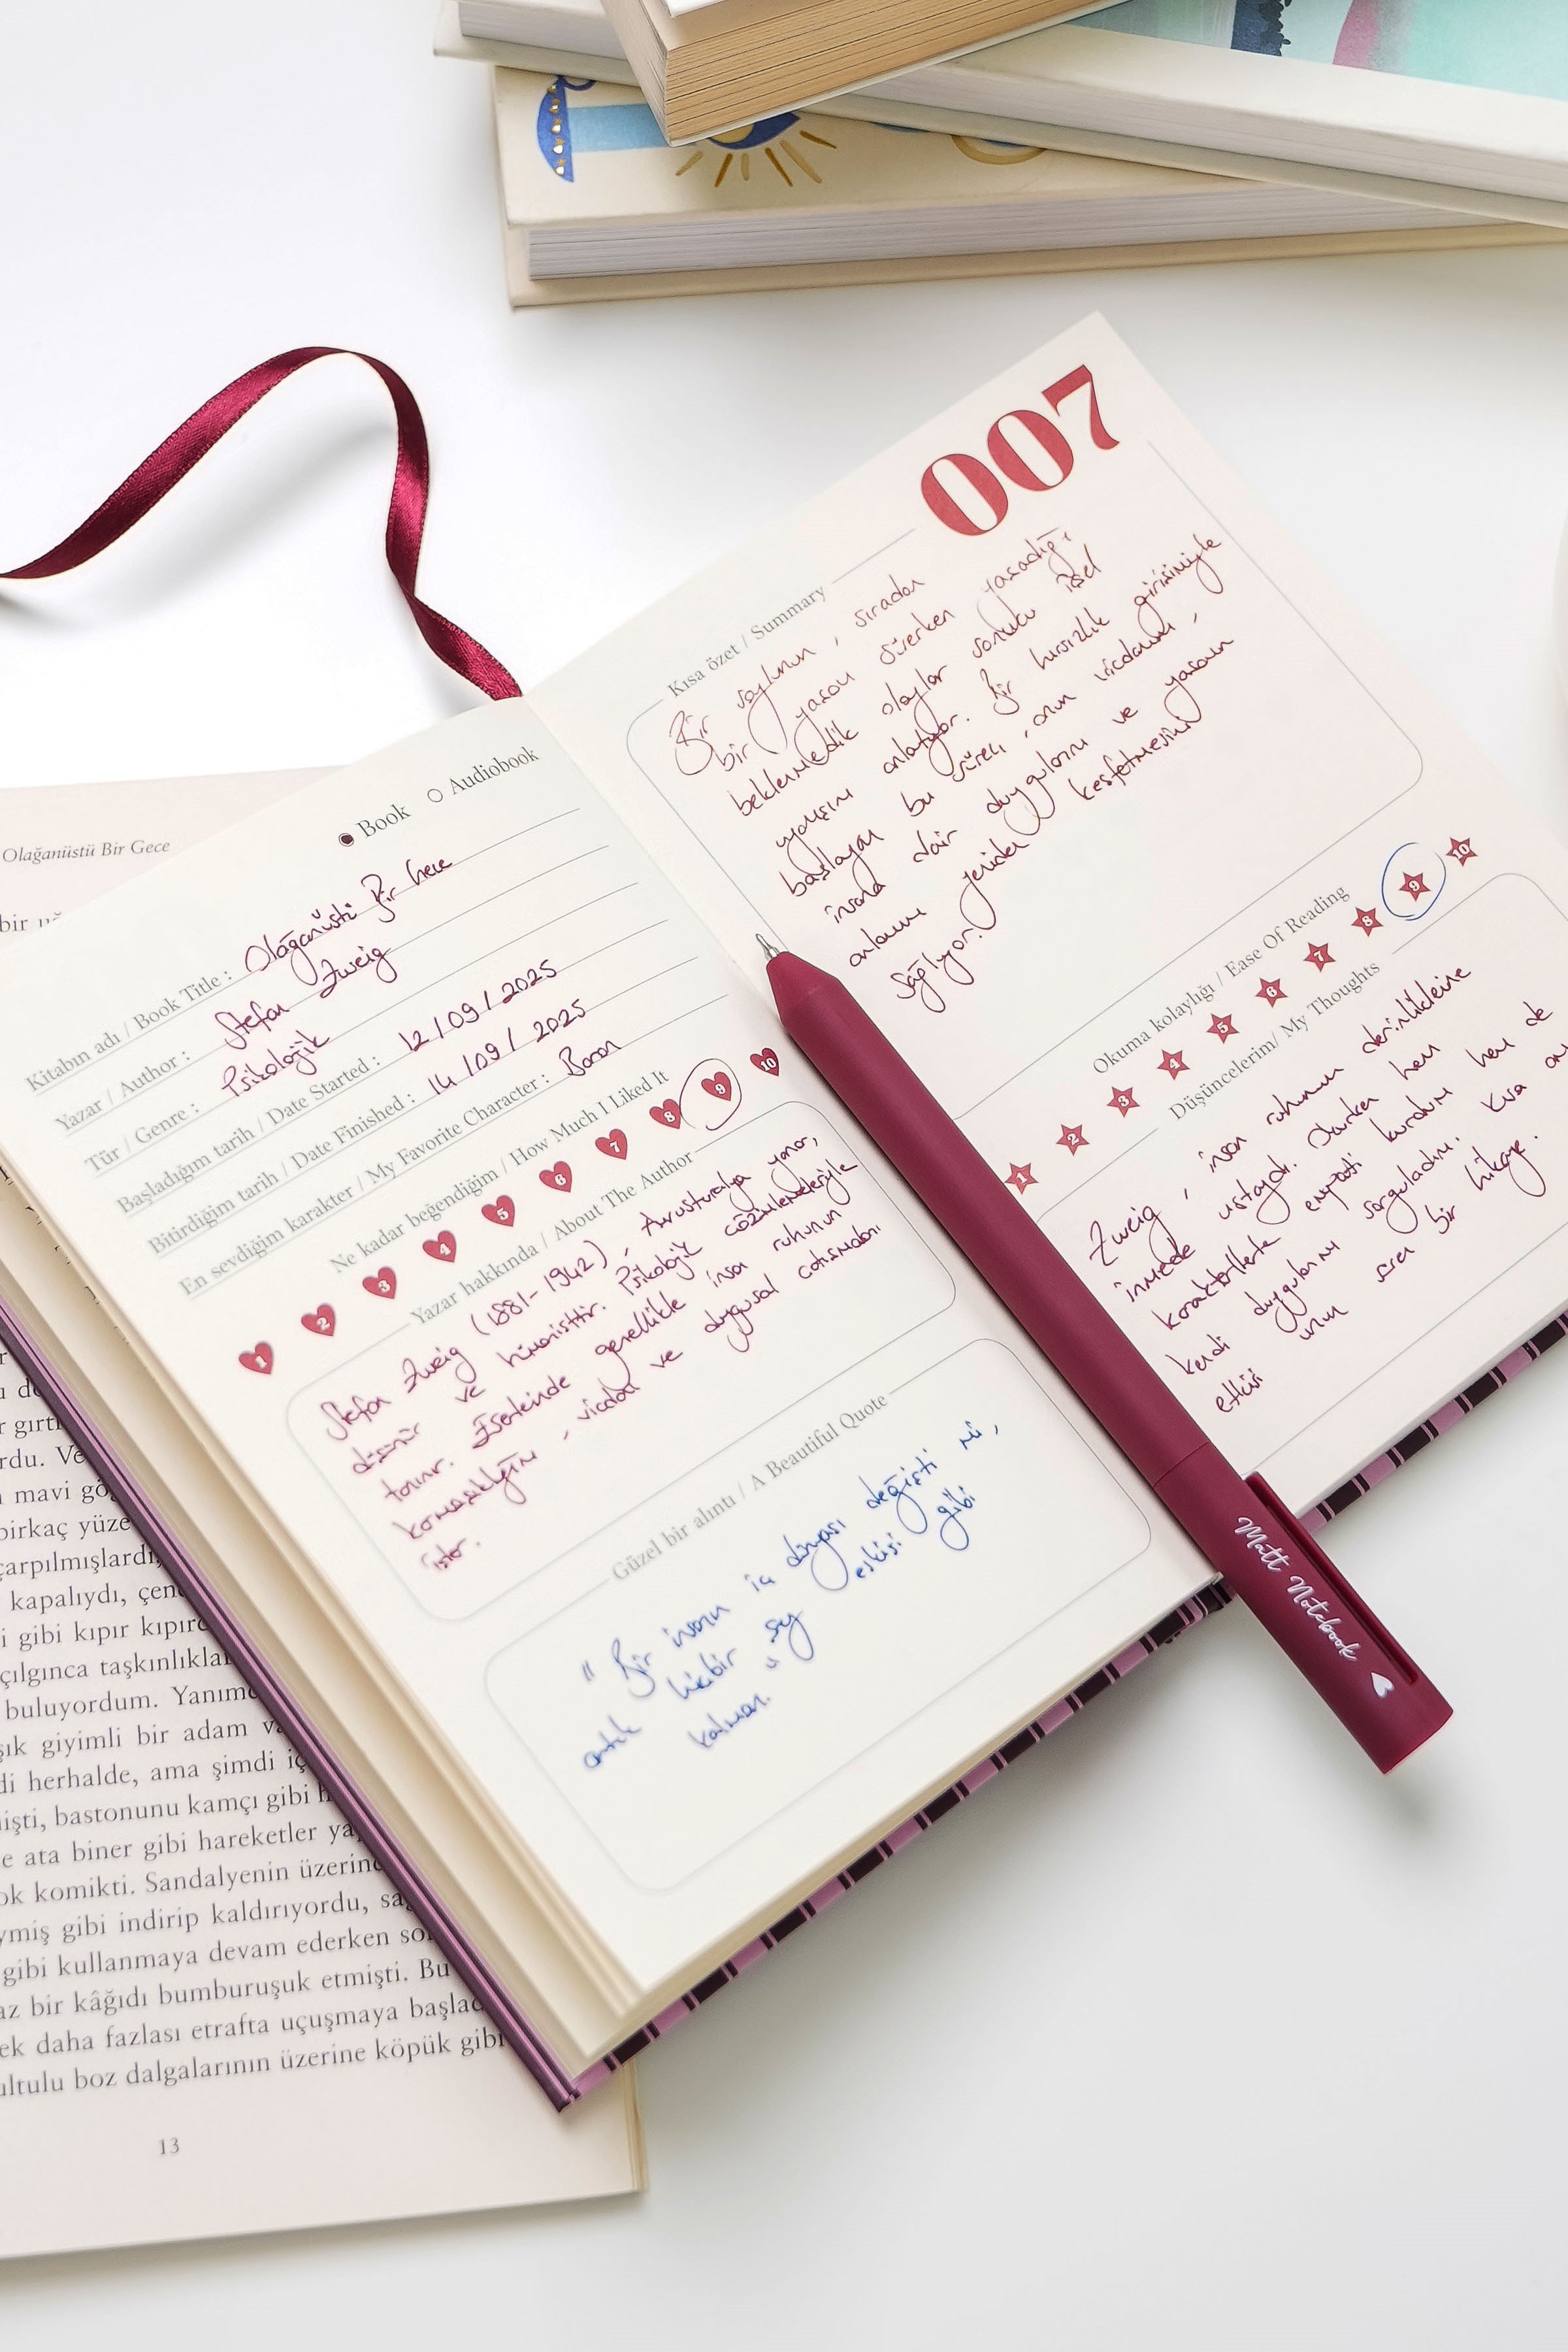 Olağanüstü Bir Gece
bir
● Book ○ Audiobook
Kitabın adı / Book Title : Olağanüstü Bir Gece
Yazar / Author : Stefan Zweig
Tür / Genre : Psikolojik
Başladığım tarih / Date Started : 12 / 09 / 2025
Bitirdiğim tarih / Date Finished : 14 / 09 / 2025
En sevdiğim karakter / My Favorite Character : Baron
Ne kadar beğendiğim / How Much I Liked It
1 2 3 4 5 6 7 8 9 10
Yazar hakkında / About The Author
Stefan Zweig (1881-1942), Avusturalya yazar,
ve hümanisttir. Psikolojik çözümlemeleriyle
tanınır. Eserlerinde genellikle insan ruhunun
karmaşıklığını, vicdan ve duygusal çatışmaları
işler.
Güzel bir alıntı / A Beautiful Quote
" Bir insanın iç dünyası değişti mi,
artık hiçbir şey eskisi gibi
kalmaz. "
007
Kısa özet / Summary
Bir soylunun, sıradan
bir yaşam sürerken yaşadığı
beklenmedik olaylar sonucu içsel
uyanışını anlatıyor. Bir hırsızlık girişimiyle
başlayan bu süreç, onun vicdanını,
insana dair duygularını ve yaşamın
anlamını yeniden keşfetmesini
sağlıyor.
Okuma kolaylığı / Ease Of Reading
1 2 3 4 5 6 7 8 9 10
Düşüncelerim/ My Thoughts
Zweig, insan ruhunun derinliklerine
inmede ustaydı. Okurken hem
karakterlerle empati kurdum hem de
kendi duygularımı sorguladım. Kısa ama
etkisi uzun süren bir hikaye.
Matt Notebook
gırt
rdu. Ve
mavi gö
birkaç yüze
çarpılmışlardı,
kapalıydı, çene
i gibi kıpır kıpır
çılgınca taşkınlıkla
buluyordum. Yanım
şık giyimli bir adam va
di herhalde, ama şimdi iç
işti, bastonunu kamçı gibi h
e ata biner gibi hareketler ya
ok komikti. Sandalyenin üzerin
ymiş gibi indirip kaldırıyordu, sa
gibi kullanmaya devam ederken so
az bir kâğıdı bumburuşuk etmişti. Bu
ek daha fazlası etrafta uçuşmaya başla
ultulu boz dalgalarının üzerine köpük gibi
13